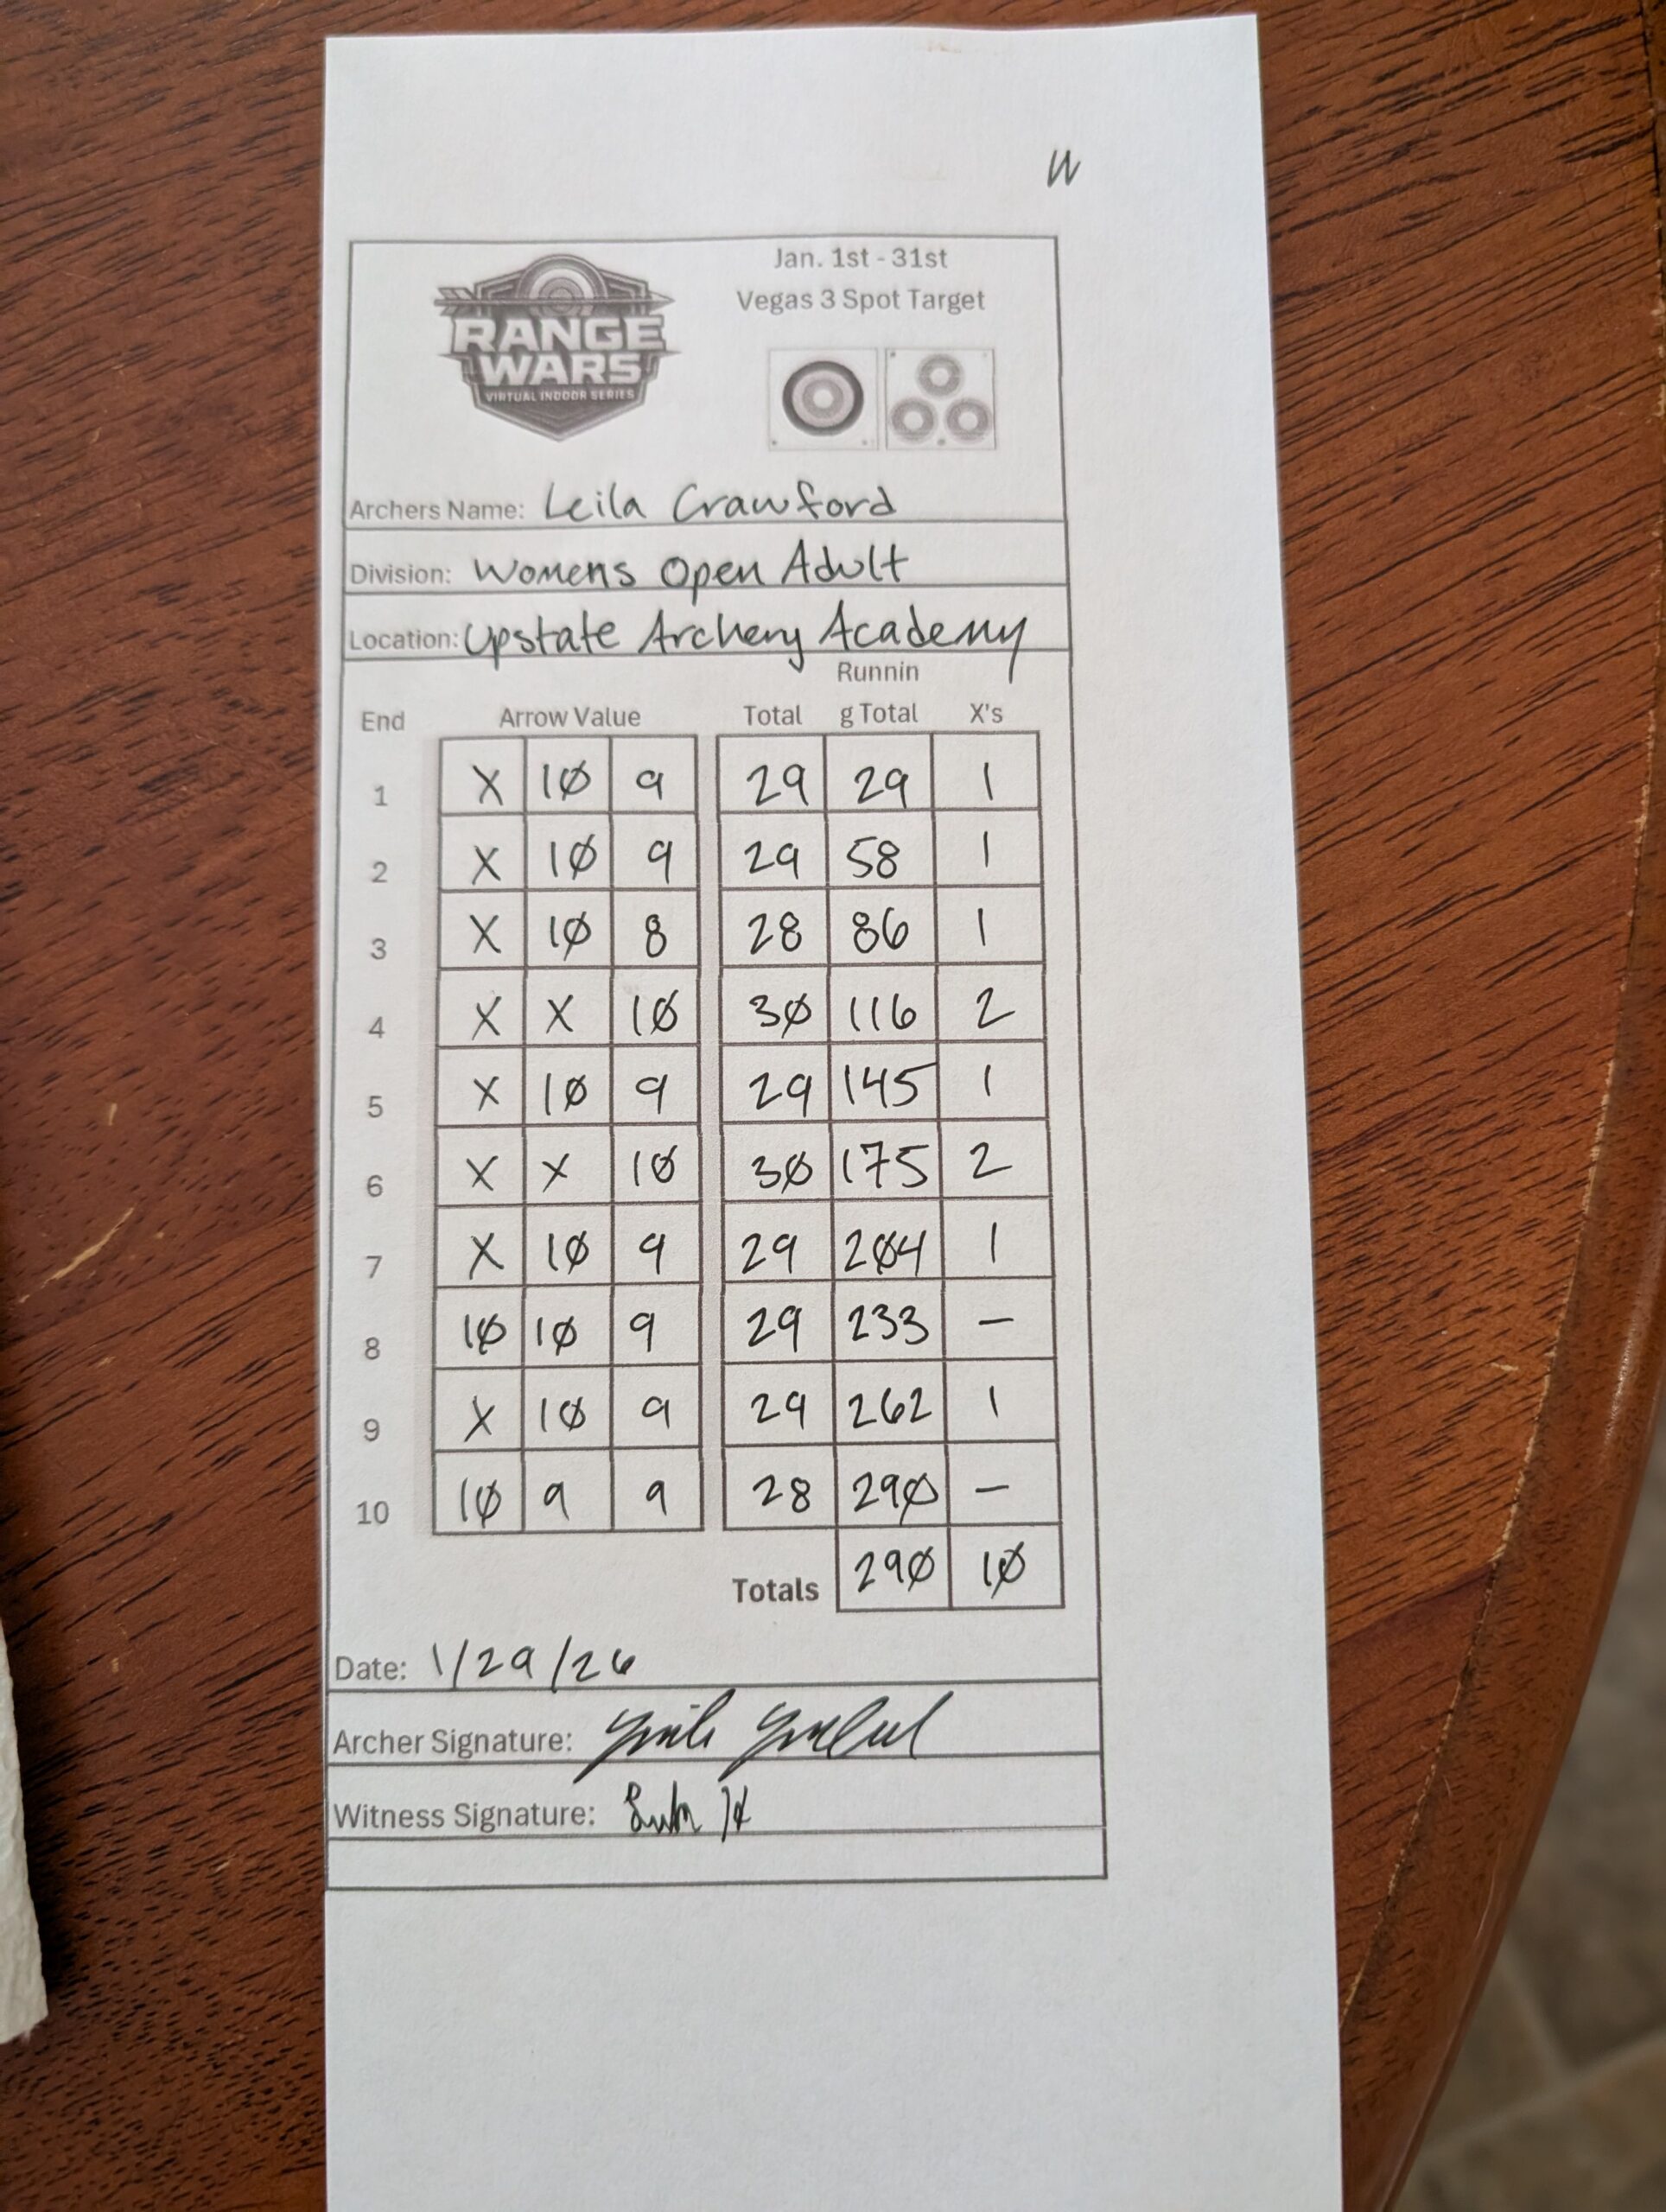 W
Jan. 1st - 31st
Vegas 3 Spot Target
RANGE
WARS
VIRTUAL INDOOR SERIES
Archers Name: Leila Crawford
Division: Womens Open Adult
Location: Upstate Archery Academy
Runnin
End Arrow Value Total g Total X's
1 X 10 9 29 29 1
2 X 10 9 29 58 1
3 X 10 8 28 86 1
4 X X 10 30 116 2
5 X 10 9 29 145 1
6 X X 10 30 175 2
7 X 10 9 29 204 1
8 10 10 9 29 233 –
9 X 10 9 29 262 1
10 10 9 9 28 290 –
Totals 290 10
Date: 1/29/26
Archer Signature:
Witness Signature: